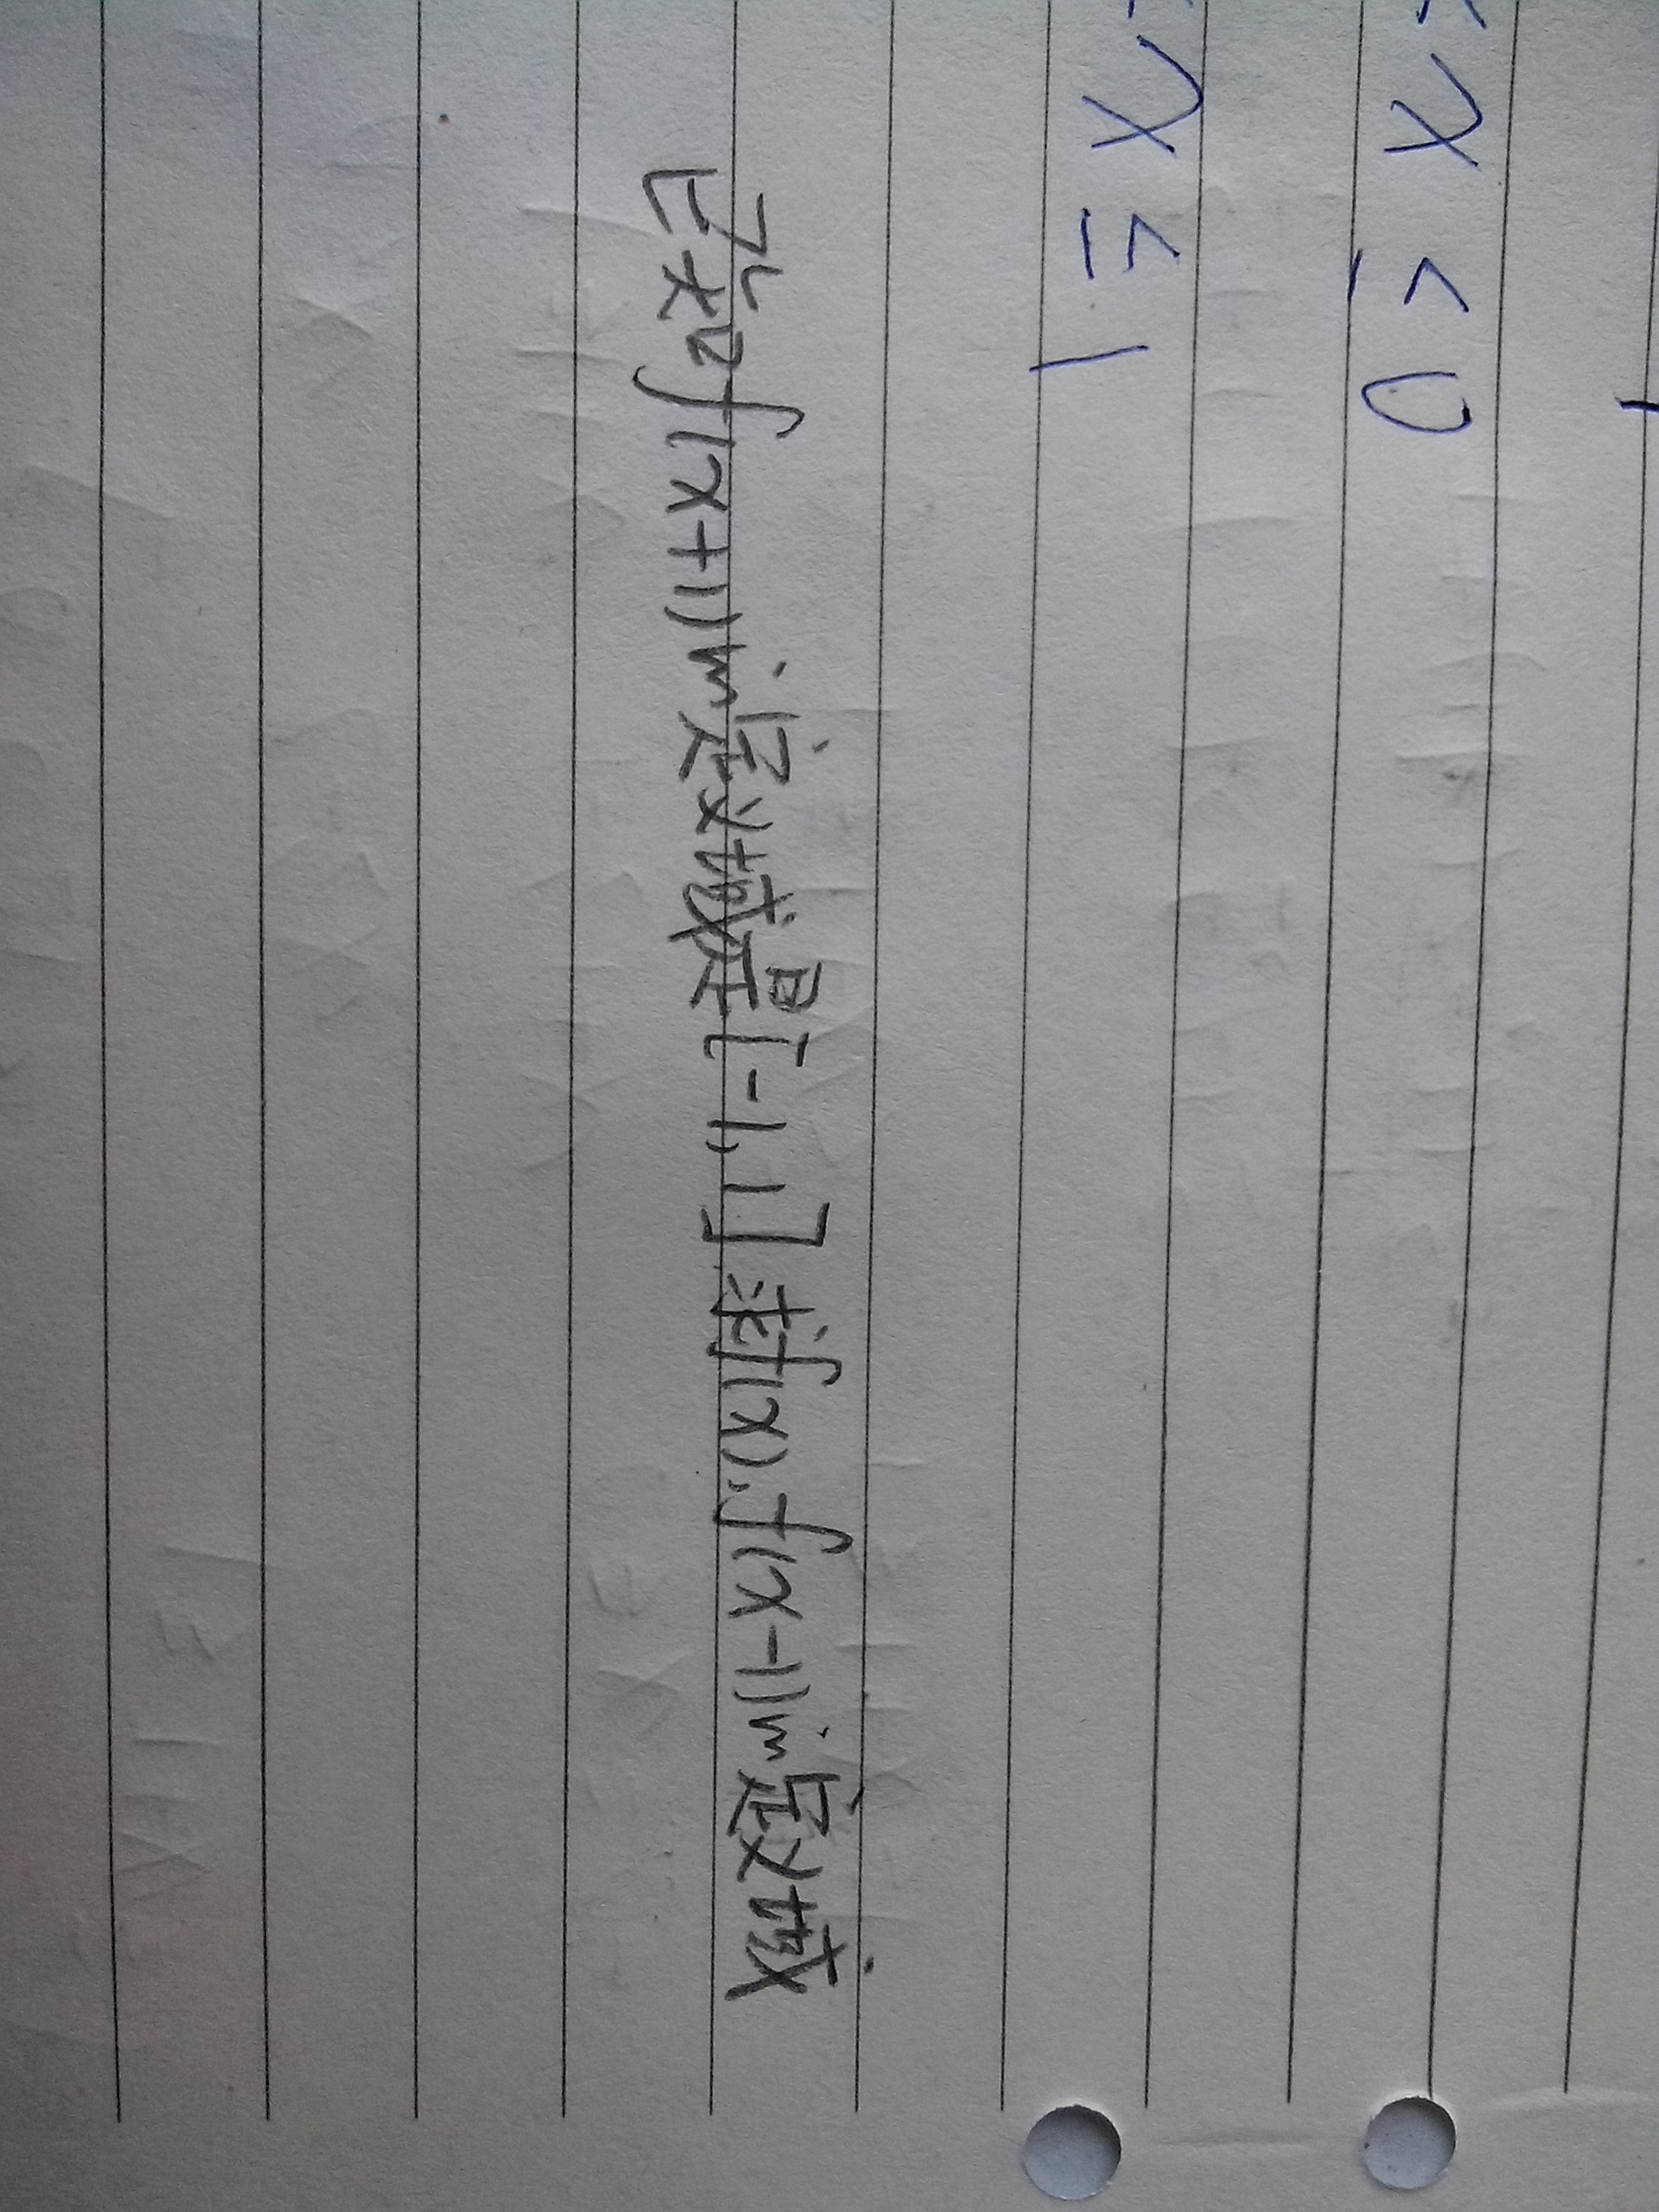 x ≤ 0
x ≤ 1
已知f(x+1)的定义域是[-1,1]求f(x),f(x-1)的定义域